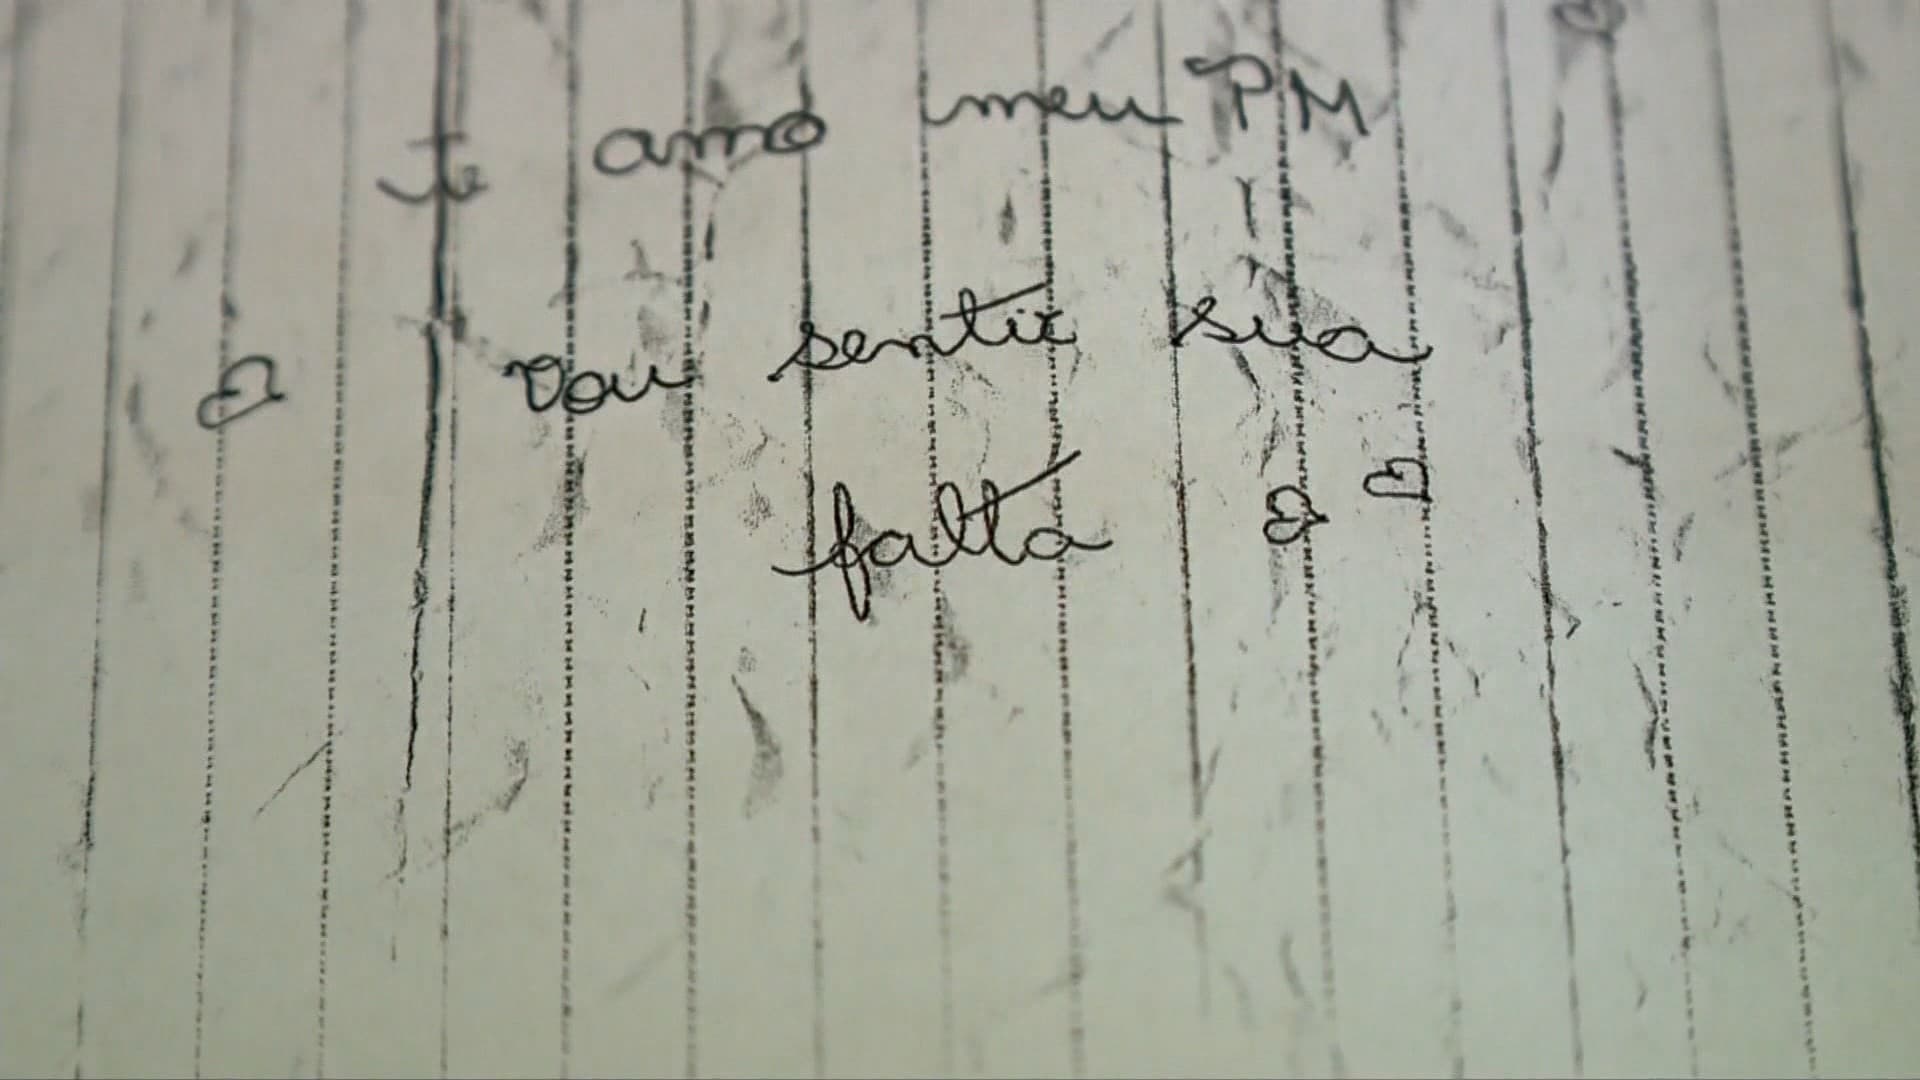 Te amo meu PM
Vou sentir sua
falta